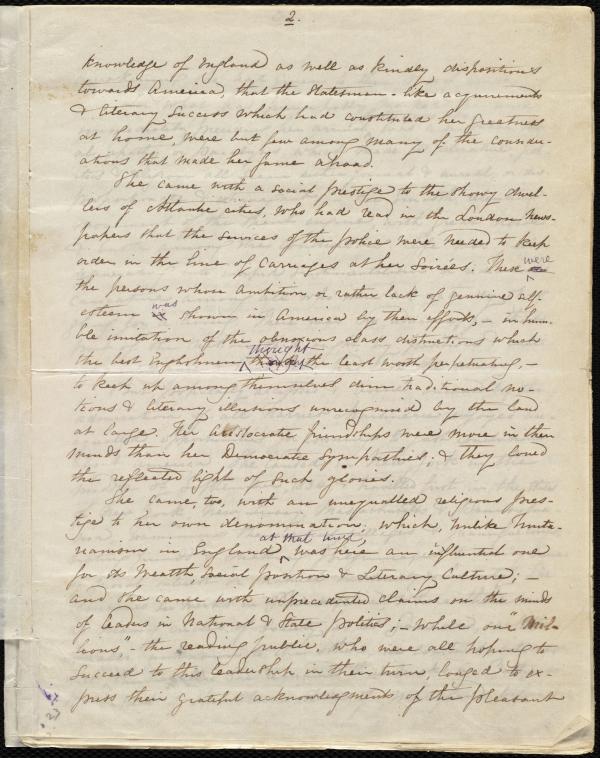 2.
knowledge of England as well as kindly dispositions
towards America, that the statesman-like acquirements
& literary success which had constituted her greatness
at home, were but few among many of the consider-
ations that made her fame abroad.
She came with a social prestige to the showy dwel-
lers of Atlantic cities, who had read in the London news-
papers that the services of the police were needed to keep
order in the line of carriages at her soirées. These were
the persons whose ambition, or rather lack of genuine self-
esteem was shown in America by their efforts, - in hum-
ble imitation of the obnoxious class distinctions which
the best Englishmen thought the least worth perpetuating, -
to keep up among themselves dim traditional no-
tions & literary illusions unrecognised by the land
at large. Her Aristocratic friendships were more in their
minds than her Democratic sympathies; & they loved
the reflected light of such glories.
She came, too, with an unequalled religious pres-
tige to her own denomination, which, unlike Unita-
rianism in England at that time, was here an influential one
for its Wealth, Social position & Literary Culture; -
and she came with unprecedented claims on the minds
of leaders in National & State politics; - While our "Mil-
lions," - the reading public, who were all hoping to
succeed to this leadership in their turn, longed to ex-
press their grateful acknowledgments of the pleasant